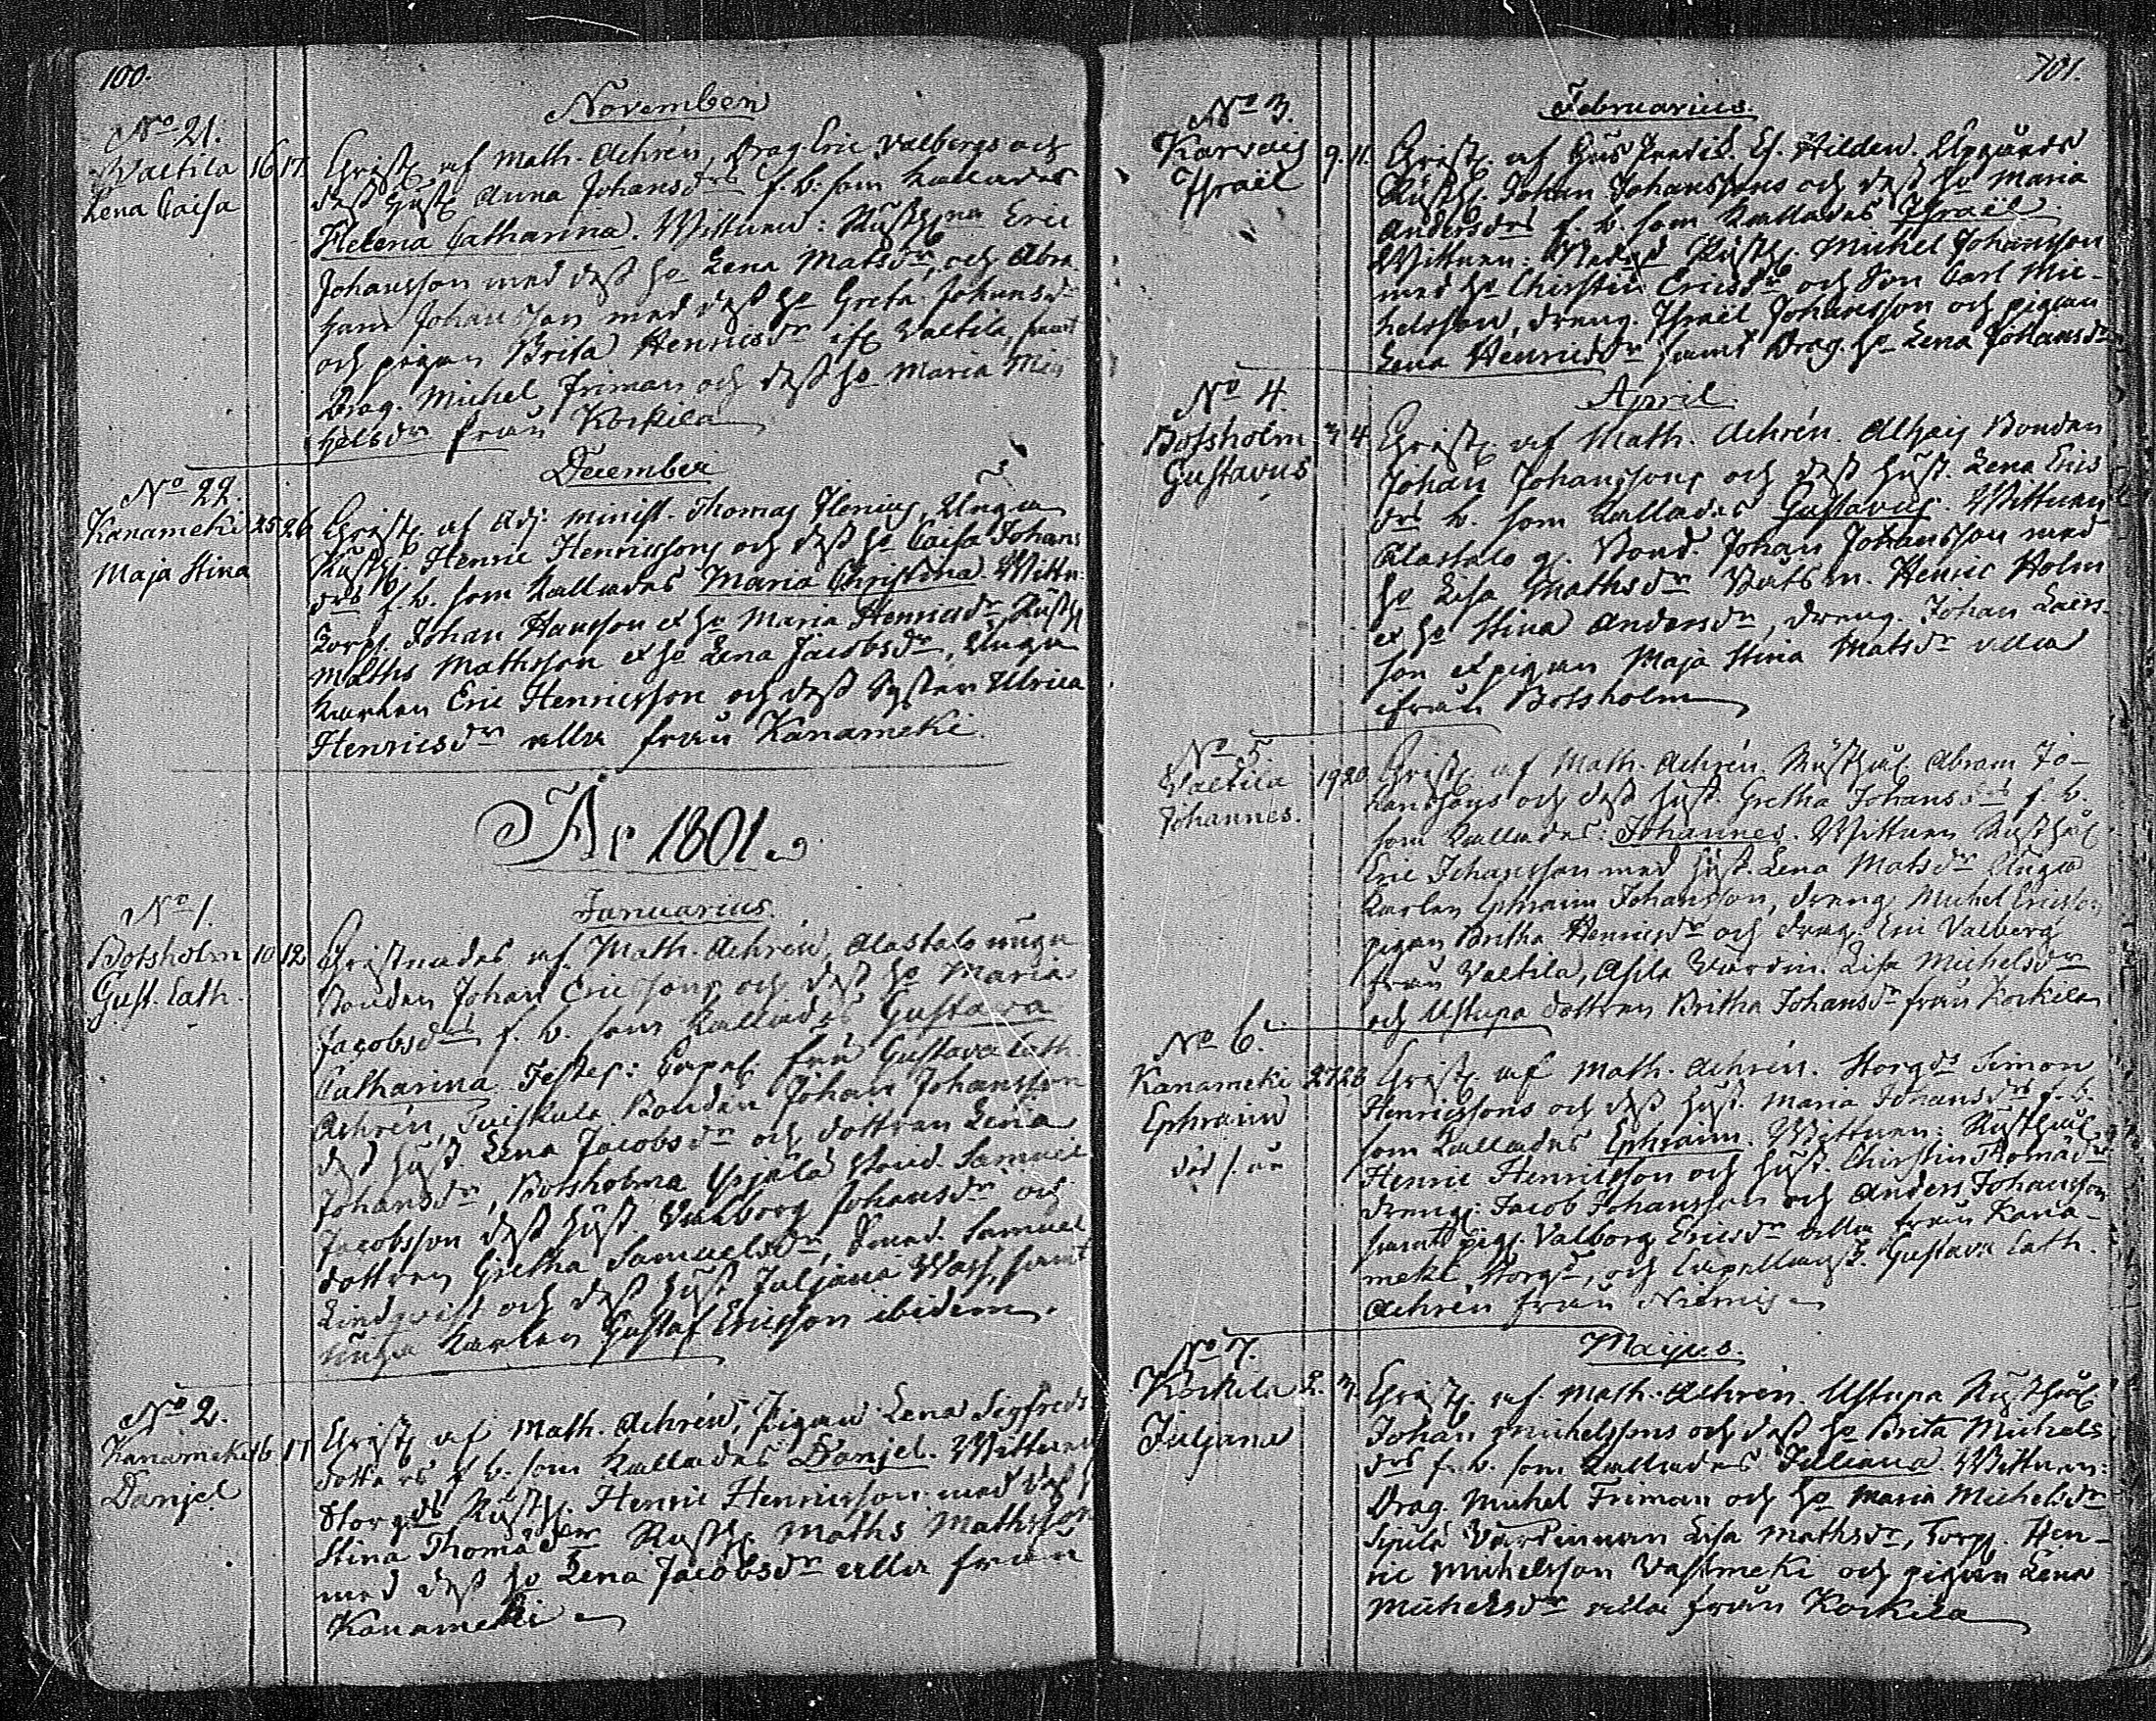 100.
November
No 21.
Waltila 16 17.
Lena Caisa
Christ. af Math. Achrén, Drag. Eric Valbergs och
dess hust. Anna Johansdrs f. b. som kallades
Helena Catharina. Wittnen: Rusth. Eric
Johansson med dess ho Lena Matsdr, och Abra
ham Johansson med dess ho Greta Johansdr
och pigan Brita Henricsdr ifr. Valtila, samt
Drag. Michel Friman och dess ho Maria Mic
helsdr från Korkila
December
No 22.
Kanameki 25 26
Maja Stina
Christ. af Adj. Minist. Thomas Ilenius, Unga
Rusth. Henric Henricssons och dess ho Caisa Johans
drs f. b. som kallades Maria Christina. Wittn:
Torp. Johan Hansson et ho Maria Henricsdr, Rusth
Maths Mathsson et ho Lena Jacobsdr, Unga
karlen Eric Henricsson och dess Syster Ulrica
Henricsdr alla från Kanameki.
År 1801.
Januarius.
No 1.
Botsholm 10 12
Gust. Cath.
Christnades af Math. Achrén, Alastalo unga
Bonden Johan Ericssons och dess ho Maria
Jacobsdrs f. b. som kallades Gustava
Catharina. Testes: Capel. fru Gustava Cath.
Achrén, Bonden Johan Johansson
dess hust. Lena Jacobsdr och dottren Lena
Johansdr, Botsholms Bond. Samuel
Jacobsson dess hust. Valborg Johansdr och
dottren Gretha Samuelsdr, Samuel
Lindqvist och dess hust. Juljana Wass, samt
unga karlen Gustaf Ericsson ibidem.
No 2.
Kanameki 16 17
Danjel
Christ. af Math. Achrén, pigan Lena Sigfreds
dotters f. b. som kallades Danjel. Wittnen
Storgds Rusth. Henric Henricsson med dess h
Stina Thomädr Rusth. Maths Mathsson
med dess ho Lena Jacobsdr alla från
Kanameki
101.
Februarius.
No 3.
Karvais 9. 11.
Israël
Christ. af Hilden.
Rusth. Johan Johanssons och dess ho Maria
Andersdrs f. b. som kallades Israël.
Wittnen: Rusth. Michel Johansson
med ho Chirstin Ericsdr och Son Carl Mic-
helsson, dreng. Israël Johansson och pigan
Lena Henricsdr samt Drag. ho Lena Johansdr
April
No 4.
Botsholm 3 4
Gustavus
Christ. af Math. Achrén. Bonden
Johan Johanssons och dess hust. Lena Erics
drs b. som kallades Gustavus. Wittnen
Alastalo Bond. Johan Johansson med
ho Lisa Mathsdr Båtsm. Henric Holm
et ho Stina Andersdr, dreng. Johan Lars-
son et pigan Maja Stina Matsdr alla
ifrån Botsholm
No 5
Valtila 19 20
Johannes.
Christ. af Math. Achrén. Rusthål. Abram Jo-
hanssons och dess hust. Gretha Johansdrs f. b.
som kallades: Johannes. Wittnen Rusthål
Eric Johansson med hust. Lena Matsdr Unga
karlen Ephraim Johansson, dreng Michel Ericsson
pigan Britha Henricsdr och drag. Eric Valberg
från Valtila, Asila Värdin. Lisa Michelsdr
och Ustupa dottren Britha Johansdr från Korkila
No 6.
Kanameki 27 28
Ephraim
Christ. af Math. Achrén. Storgds Simon
Henricssons och dess hust. Maria Johansdrs f. b.
som kallades Ephraim. Wittnen: Rusthål.
Henric Henricsson och hust. Chirstin Thomädr
dreng: Jacob Johansson och Anders Johansson
samt pig. Valborg Ericsdr alla från Kana-
meki Storgd, och Capellansf. Gustava Cath.
Achrén från Niemis
Maijus.
No 7.
Korkila 2. 3.
Juljana
Christ. af Math. Achrén. Ustupa Rusthål
Johan Michelssons och dess ho Brita Michels
drs f. b. som kallades Juliana. Wittnen:
Drag. Michel Friman och ho Maria Michelsdr
Sipilä Värdinnan Lisa Mathsdr, Torp. Hen-
ric Michelsson Vastmeki och pigan Lena
Michelsdr alla från Korkila